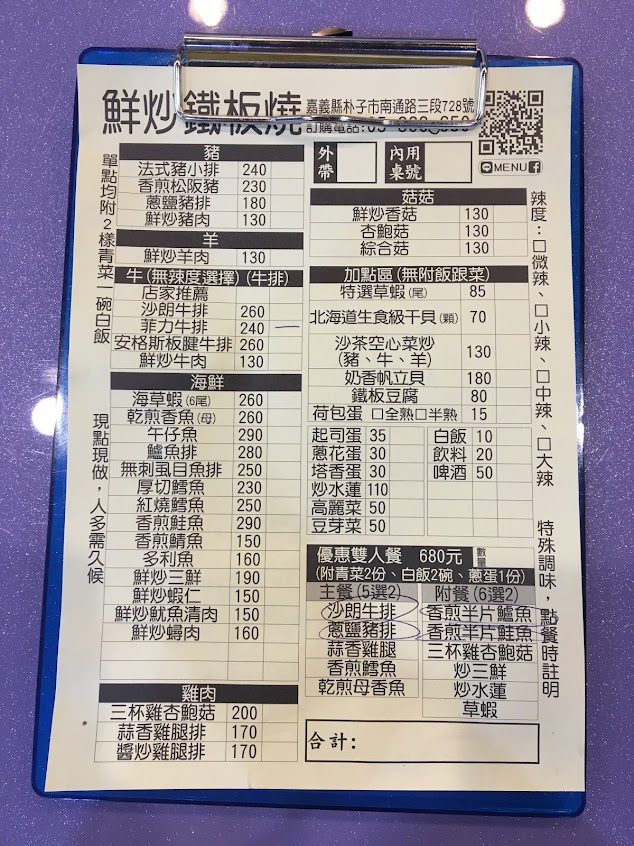 鮮炒鐵板燒
嘉義縣朴子市南通路三段728號
訂購電話:
MENU
外帶
內用桌號
單點均附2樣青菜一碗白飯
現點現做，人多需久候
豬
法式豬小排 240
香煎松阪豬 230
蔥鹽豬排 180
鮮炒豬肉 130
羊
鮮炒羊肉 130
牛(無辣度選擇)(牛排)
店家推薦
沙朗牛排 260
菲力牛排 240
安格斯板腱牛排 260
鮮炒牛肉 130
海鮮
海草蝦(6尾) 260
乾煎香魚(母) 260
午仔魚 290
鱸魚排 280
無刺虱目魚排 250
厚切鱈魚 230
紅燒鱈魚 250
香煎鮭魚 290
香煎鯖魚 150
多利魚 160
鮮炒三鮮 190
鮮炒蝦仁 150
鮮炒魷魚清肉 150
鮮炒蟳肉 160
雞肉
三杯雞杏鮑菇 200
蒜香雞腿排 170
醬炒雞腿排 170
菇菇
鮮炒香菇 130
杏鮑菇 130
綜合菇 130
加點區(無附飯跟菜)
特選草蝦(尾) 85
北海道生食級干貝(顆) 70
沙茶空心菜炒
(豬、牛、羊) 130
奶香帆立貝 180
鐵板豆腐 80
荷包蛋 口全熟口半熟 15
起司蛋 35 白飯 10
蔥花蛋 30 飲料 20
塔香蛋 30 啤酒 50
炒水蓮 110
高麗菜 50
豆芽菜 50
優惠雙人餐 680元 數量
(附青菜2份、白飯2碗、蔥蛋1份)
主餐(5選2) 附餐(6選2)
沙朗牛排 香煎半片鱸魚
蔥鹽豬排 香煎半片鮭魚
蒜香雞腿 三杯雞杏鮑菇
香煎鱈魚 炒三鮮
乾煎母香魚 炒水蓮
草蝦
合計:
辣度:口微辣、口小辣、口中辣、口大辣
特殊調味，點餐時註明